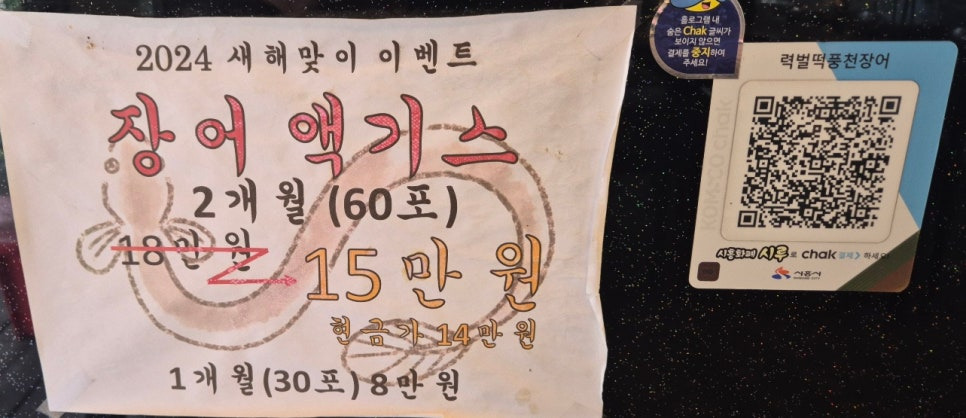 2024 새해맞이 이벤트
장어 액기스
2개월 (60포)
18만 원
15만 원
현금가 14만 원
1개월 (30포) 8만 원
홀로그램 내
숨은 Chak 글씨가
보이지 않으면
결제를 중지하여
주세요!
력벌떡풍천장어
KOMSCO chak
시흥화폐 시루로 chak 결제 하세요
시흥시